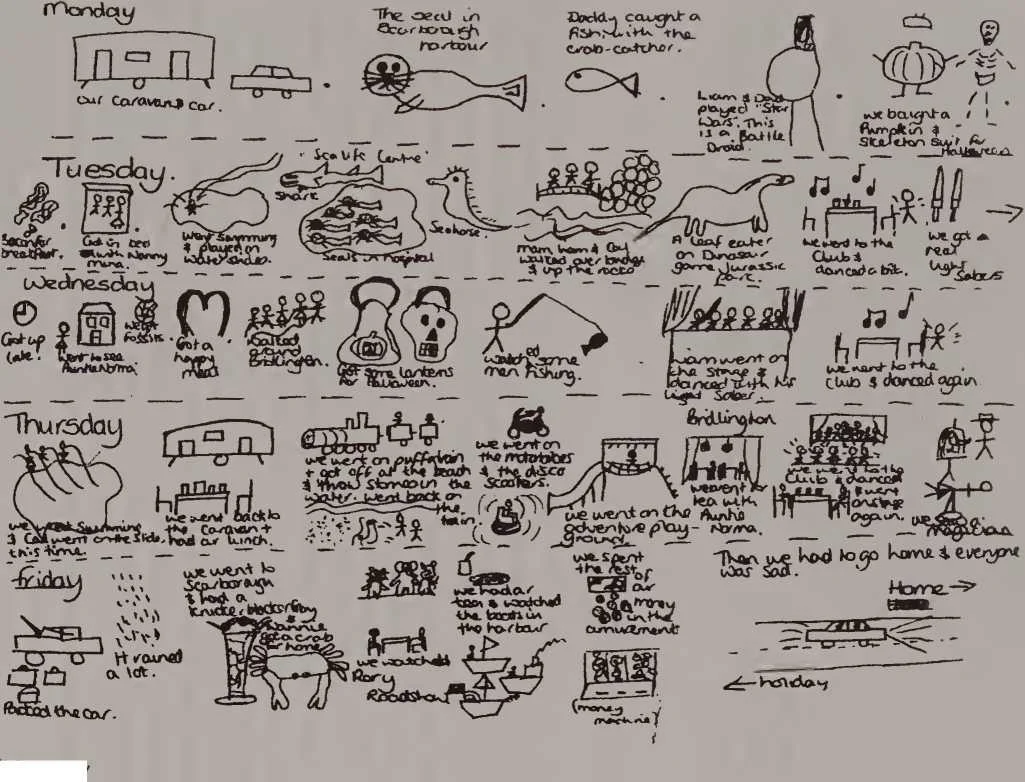 Monday
our caravan & car.
The seal in
Scarborough
harbour
Daddy caught a
fish with the
crab-catcher.
Liam & Dad
played "Star
Wars". This
is a Battle
Droid
we bought a
Pumpkin &
Skeleton suit for
Halloween
Tuesday.
Bacon for
breakfast.
Got in bed
with Nanny
mina.
Went swimming
& played on
water slides.
"Sea life Centre"
Shark
Seals in hospital
Seahorse.
mam, liam & Cal
walked over bridge
& up the rocks
A leaf eater
on Dinosaur
game, Jurassic
Park.
we went to the
Club &
danced a bit.
we got
real
light
Sabers
Wednesday
Got up
late.
Went to see
Auntie Norma
fossils.
Got a
happy
meal
walked
around
Bridlington.
Got some lanterns
for Halloween.
watched some
men fishing.
Liam went on
the stage &
danced with his
light Saber.
we went to the
Club & danced again.
Thursday
we went swimming
& Cal went on the slide,
this time.
we went back to
the Caravan &
had our lunch.
we went on puff train
& got off at the beach
& throw stones in the
water. Went back on
the
train.
we went on
the motorbikes
& the disco
scooters.
we went on the
adventure play-
ground.
Bridlington
we went for
tea with
Auntie
Norma.
we went to the
Club & danced
& went
on stage
again.
we saw a
magician
friday
Packed the car.
It rained
a lot.
we went to
Scarborough
& had a
knickerblockerglory
&
nannie
got a crab
for home
we watched
Rory
Roadshow
we had a
tea & watched
the boats in
the harbour
we spent
the rest
of
our
money
in the
amusements
(money
machine)
Then we had to go home & everyone
was sad.
Home →
← holiday